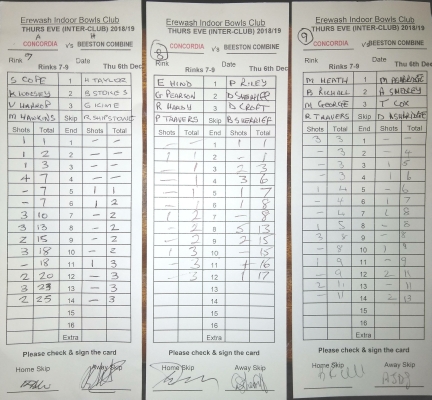 Erewash Indoor Bowls Club
THURS EVE (INTER-CLUB) 2018/19
A H
CONCORDIA v's BEESTON COMBINE
Rink 7 Date
Rinks 7-9 Thu 6th Dec
S COPE 1 A TAYLOR
2 B STOKES
V HARPER 3 G KIME
M HAWKINS Skip
Shots Total End Shots Total
1 1 1 - -
1 2 2 - -
1 3 3 - -
4 7 4 - -
- 7 5 1 1
- 7 6 1 2
3 10 7 - 2
3 13 8 - 2
2 15 9 - 2
3 18 10 - 2
- 18 11 1 3
2 20 12 - 3
3 23 13 - 3
2 25 14 - 3
15
16
Extra
Please check & sign the card
Home Skip Away Skip
Erewash Indoor Bowls Club
THURS EVE (INTER-CLUB) 2018/19
CONCORDIA v's BEESTON COMBINE
Rink 8 Date
Rinks 7-9 Thu 6th Dec
E HIND 1 P RILEY
G PEARSON 2 D SHERRIFF
R HARDY 3 D CROFT
P TRAVERS Skip B SHERRIFF
Shots Total End Shots Total
1 1
1 2 - 1
- 1 3 2 3
- 1 4 3 6
- 1 5 1 7
- 1 6 1 8
1 2 7 - 8
- 2 8 5 13
- 2 9 2 15
1 3 10 - 15
- 3 11 1 16
- 3 12 1 17
13
14
15
16
Extra
Please check & sign the card
Home Skip Away Skip
Erewash Indoor Bowls Club
THURS EVE (INTER-CLUB) 2018/19
CONCORDIA v's BEESTON COMBINE
Rink 9 Date
Rinks 7-9 Thu 6th Dec
M HEATH 1
B RICHALL 2
M GEORGE 3 T COX
R TRAVERS Skip D ASHBRIDGE
Shots Total End Shots Total
3 3 1 - -
- 3 2 - 4
- 3 3 1 5
- 3 4 1 6
1 4 5 - 6
- 4 6 1 7
- 4 7 1 8
1 5 8 - 8
3 8 9 - 8
- 8 10 1 9
1 9 11 - 9
- 9 12 2 11
2 11 13 - 11
- 11 14 2 13
15
16
Extra
Please check & sign the card
Home Skip Away Skip